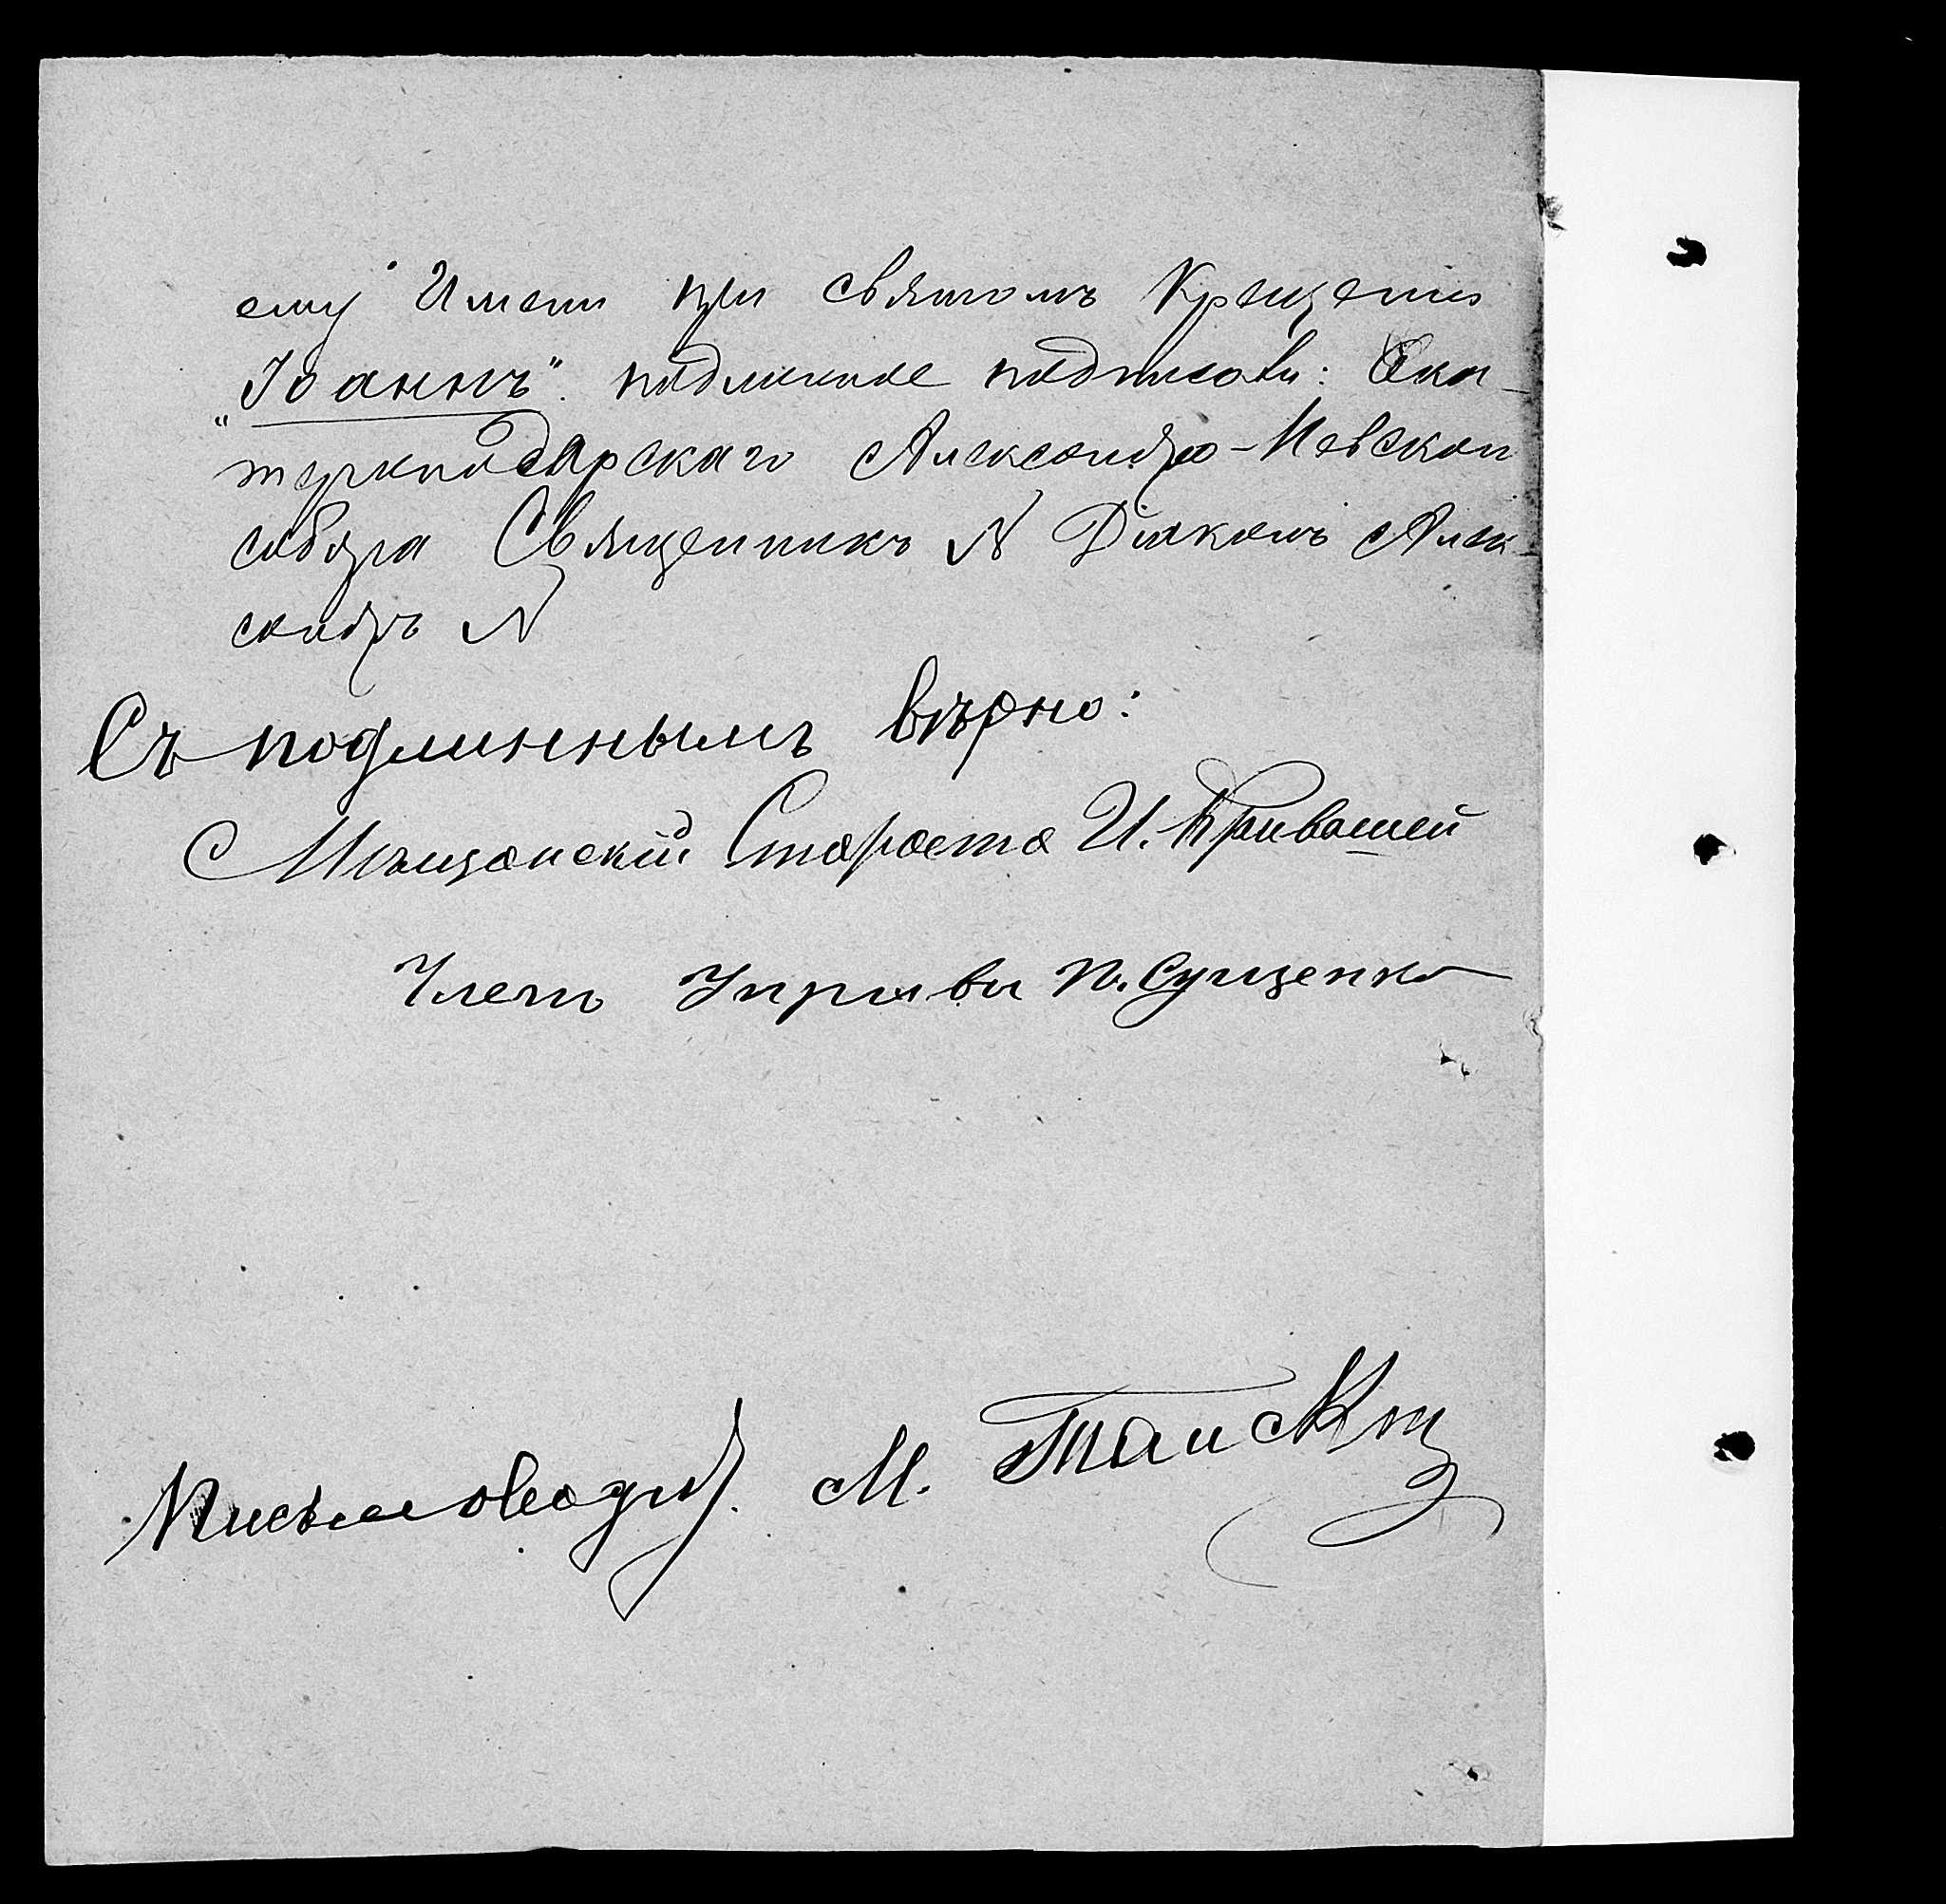 ему Имени при святомъ Крещеніи
„Іоаннъ“. подлинное подписали: Ека-
теринодарскаго Александро-Невскаго
собора Священникъ N Діаконъ Алек-
сандръ N
Съ подлиннымъ вѣрно:
Мѣщанскій Староста И. Кривошей
Членъ Управы П. Сущенко
Письмоводит. М.